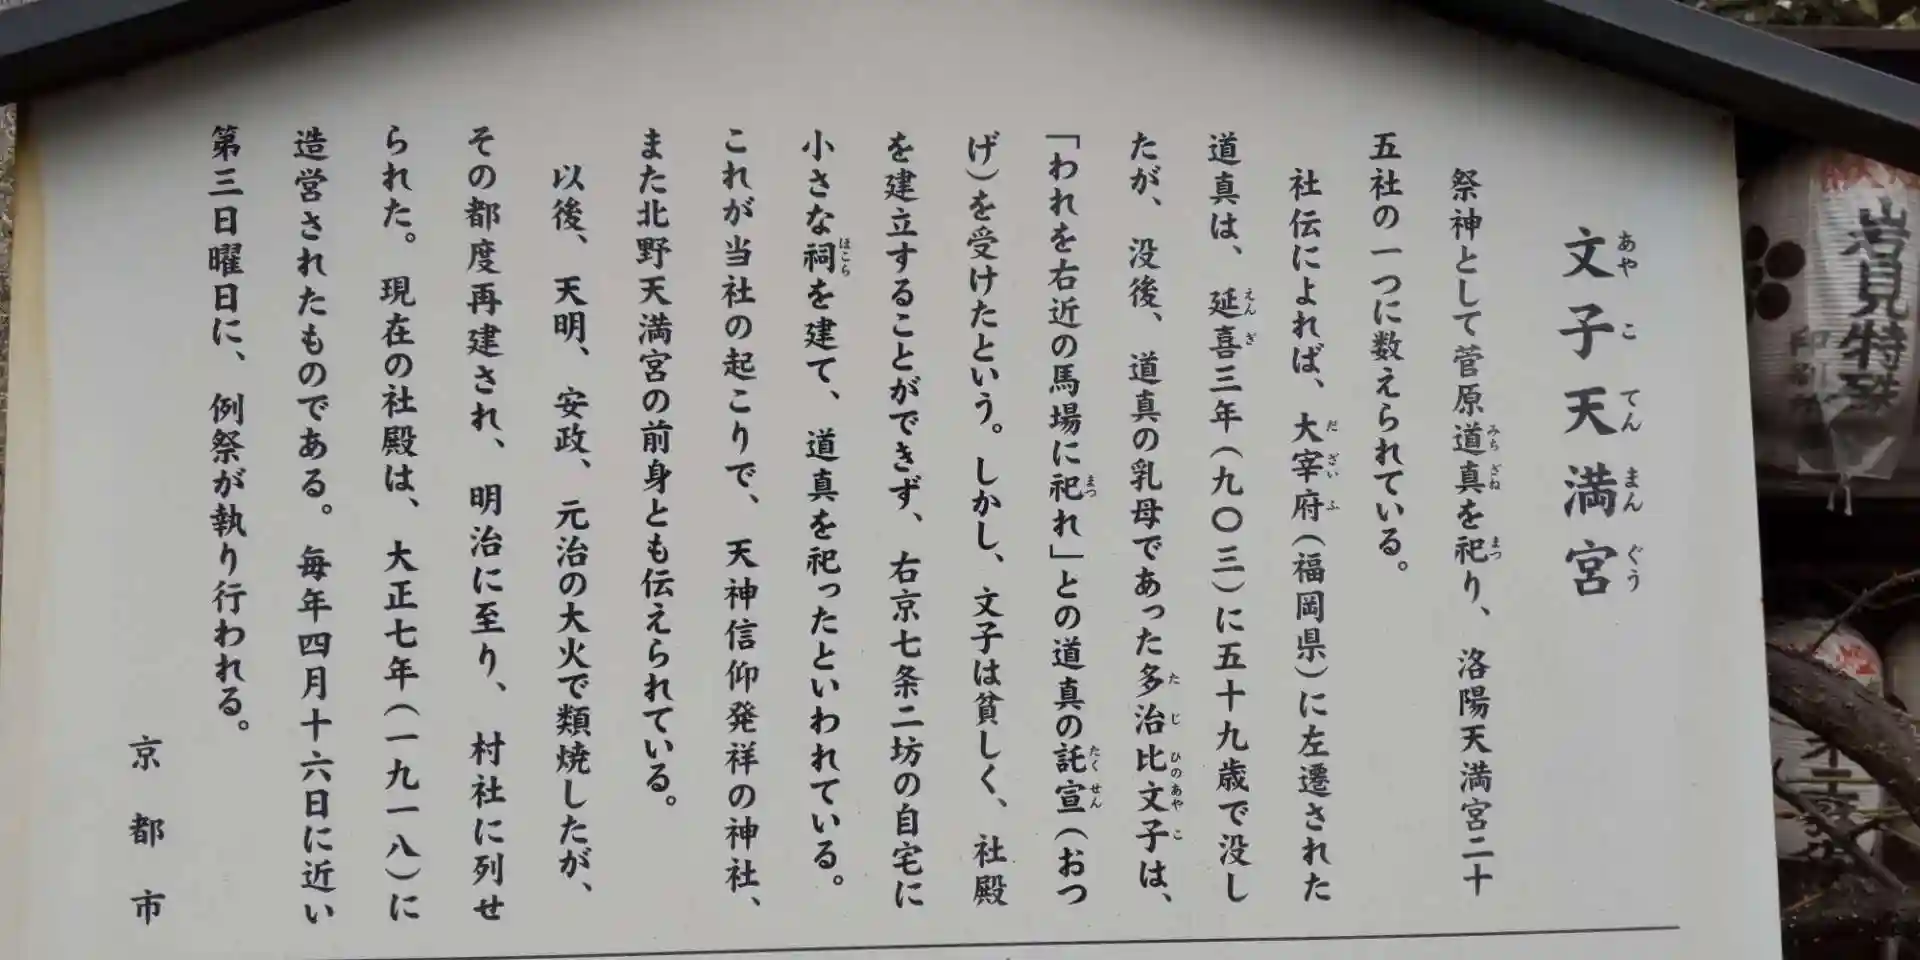 文子天満宮
あやこてんまんぐう
祭神として菅原道真を祀り、洛陽天満宮二十
みちざね
まつ
五社の一つに数えられている。
社伝によれば、大宰府（福岡県）に左遷された
だざいふ
道真は、延喜三年（九〇三）に五十九歳で没し
えんぎ
たが、没後、道真の乳母であった多治比文子は、
たじひのあやこ
「われを右近の馬場に祀れ」との道真の託宣（おつ
まつ
たくせん
げ）を受けたという。しかし、文子は貧しく、社殿
を建立することができず、右京七条二坊の自宅に
小さな祠を建て、道真を祀ったといわれている。
ほこら
これが当社の起こりで、天神信仰発祥の神社、
また北野天満宮の前身とも伝えられている。
以後、天明、安政、元治の大火で類焼したが、
その都度再建され、明治に至り、村社に列せ
られた。現在の社殿は、大正七年（一九一八）に
造営されたものである。毎年四月十六日に近い
第三日曜日に、例祭が執り行われる。
京都市
岩見特殊